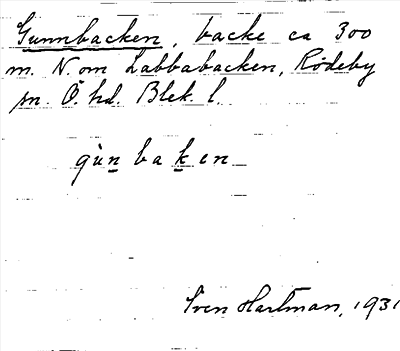 Gunnbacken, backe ca 300
m. N. om Labbabacken, Rödeby
sn. Ö. hd. Blek. l.
gùn baken
Sven Hartman, 1931